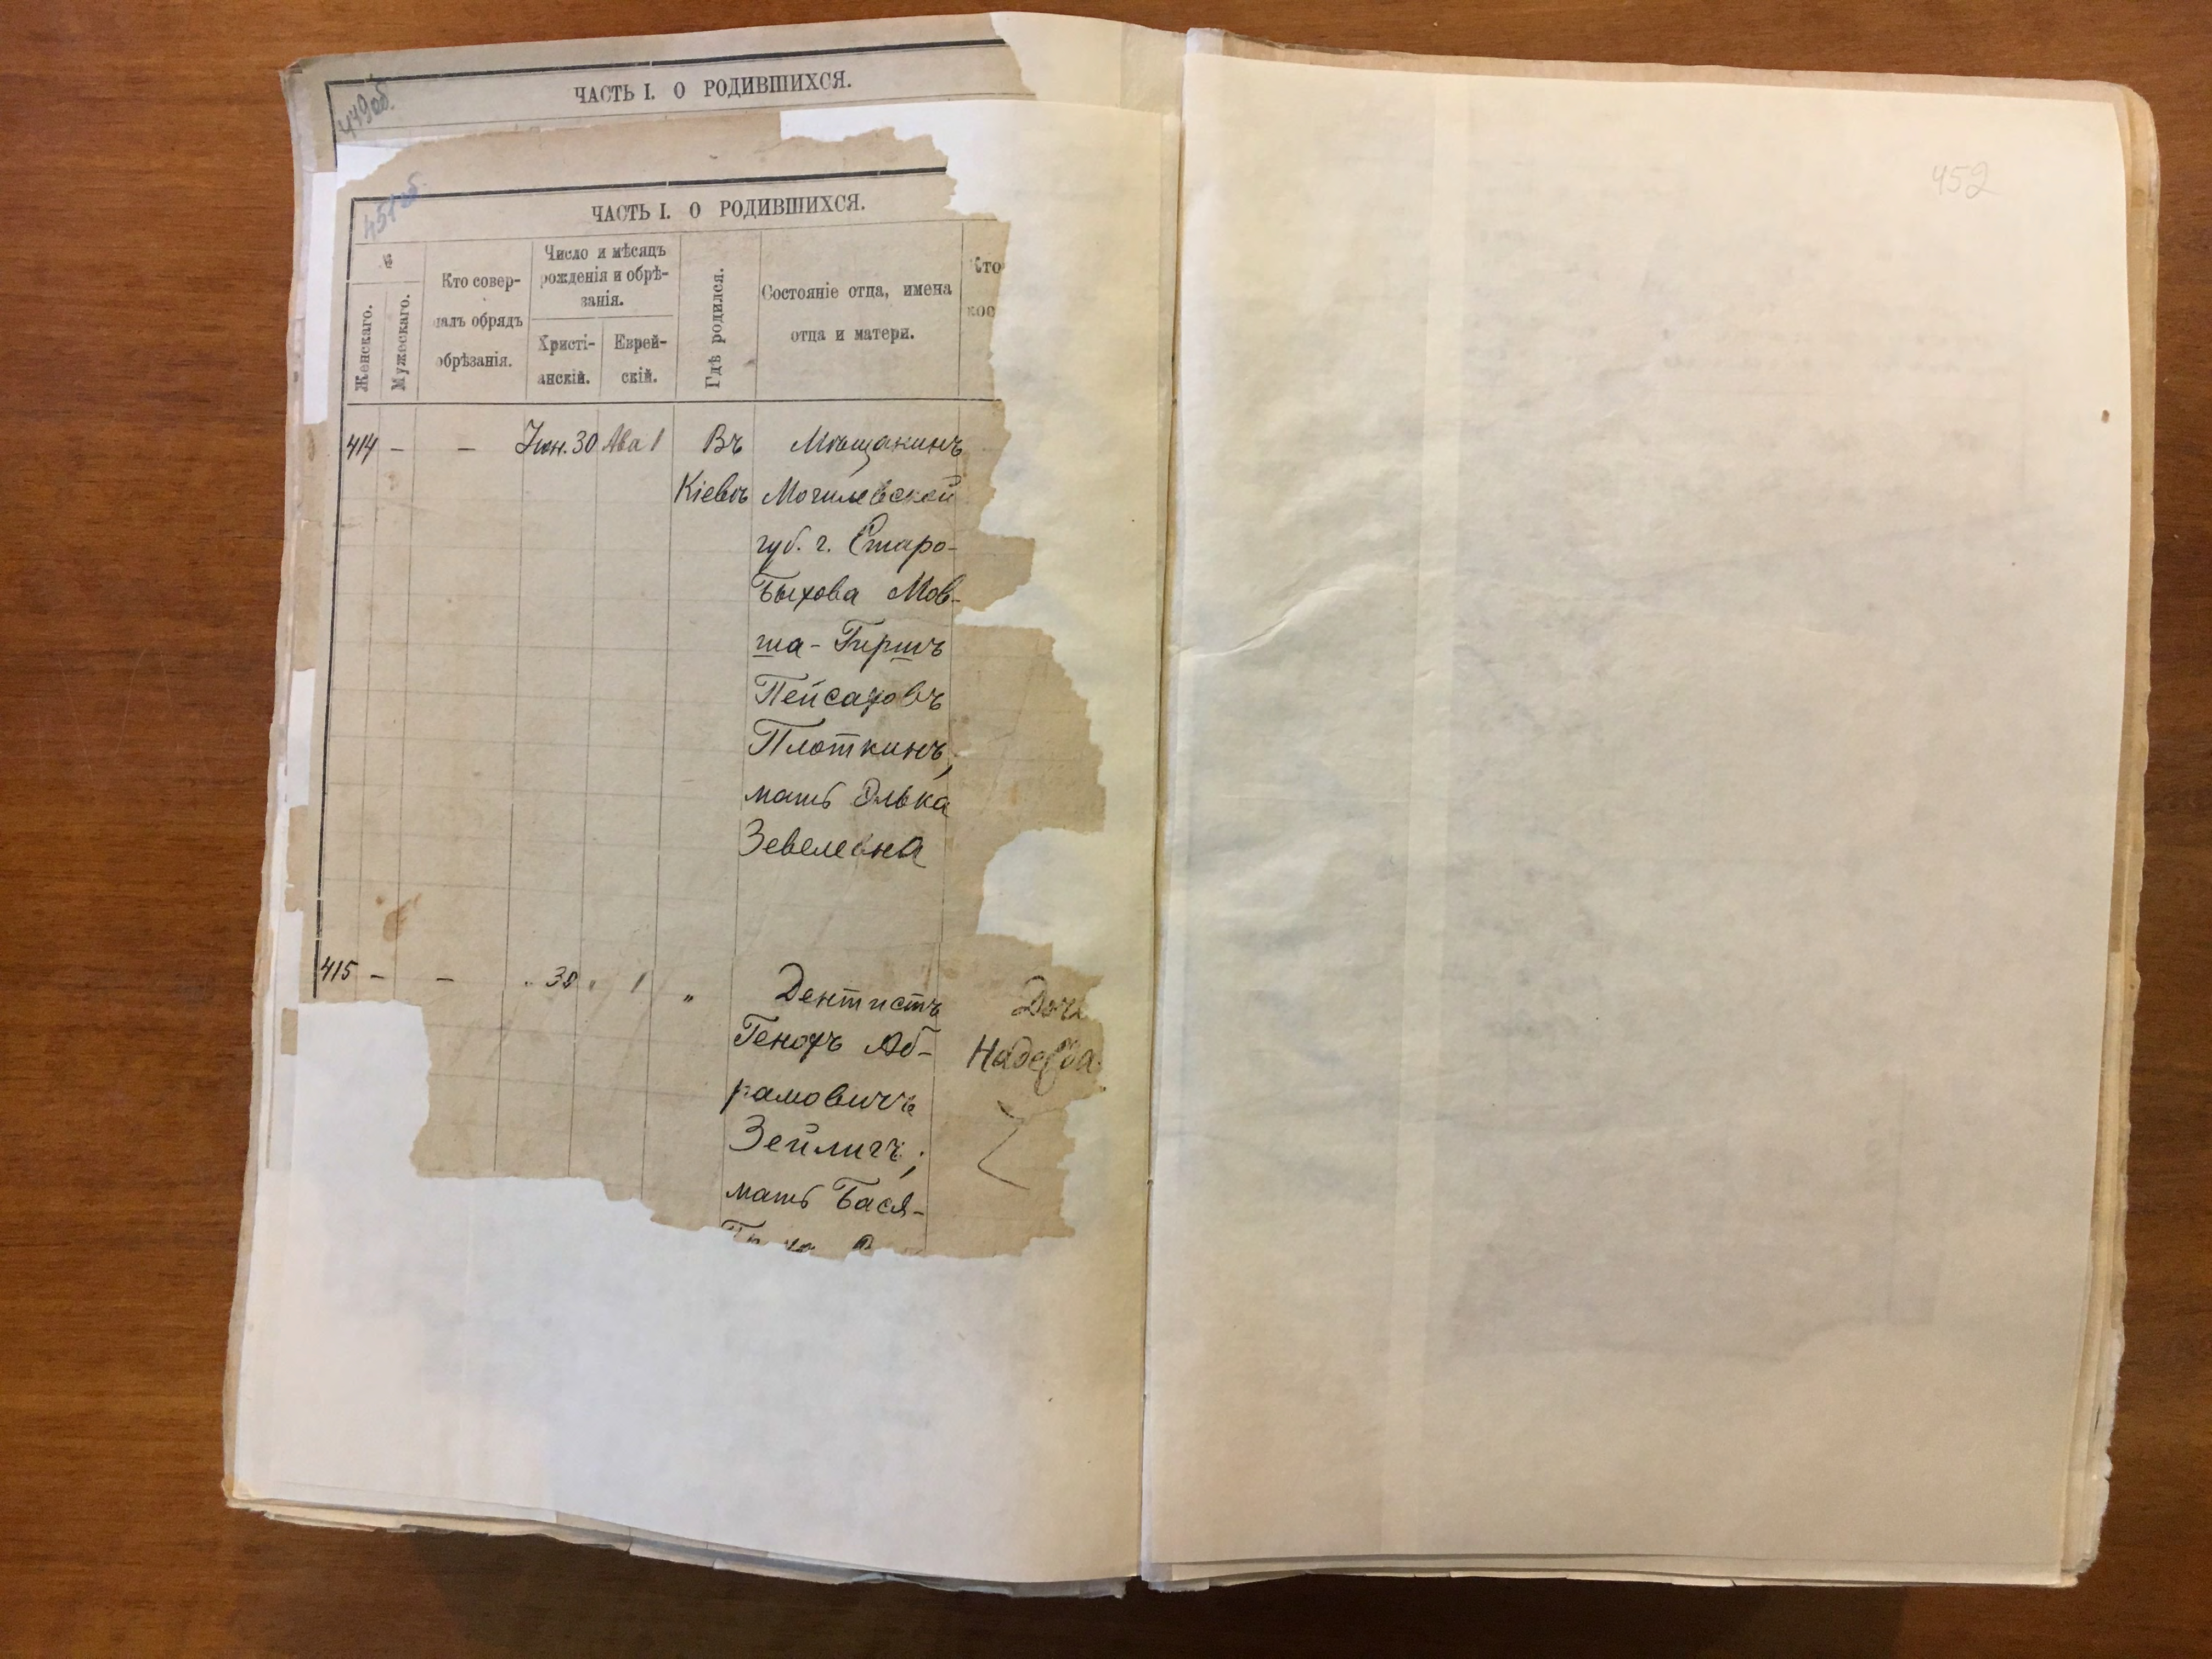 ЧАСТЬ I. О РОДИВШИХСЯ.
449об.
451об
ЧАСТЬ I. О РОДИВШИХСЯ.
№
Женскаго.
Мужескаго.
Кто совер-
шалъ обрядъ
обрѣзанія.
Число и мѣсяцъ
рожденія и обрѣ-
занія.
Христі-
анскій.
Еврей-
скій.
Гдѣ родился.
Состояніе отца, имена
отца и матери.
Кто
414 – – Іюн. 30 Ава 1 Въ Мѣщанинъ
Кіевѣ Могилевской
губ. г. Старо-
Быхова Мов-
ша-Гиршъ
Пейсаховъ
Плоткинъ;
мать Элька
Зевелевна
415 – – „ 30 „ 1 „ Дентистъ Дочь
Генохъ Аб- Надежда
рамовичъ
Зейлигъ;
мать Бася-
452